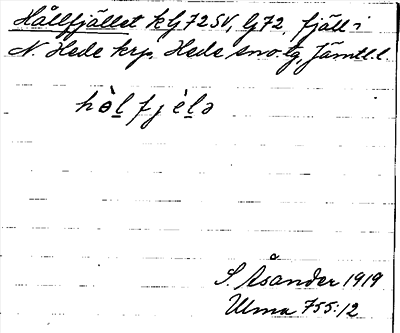 Hållfjället k G725V, G72, fjäll i
N. Hede krp, Hede sno. tg, Jämtl. l.
hòl fjèlə
S. Åsander 1919
Ulma 755:12